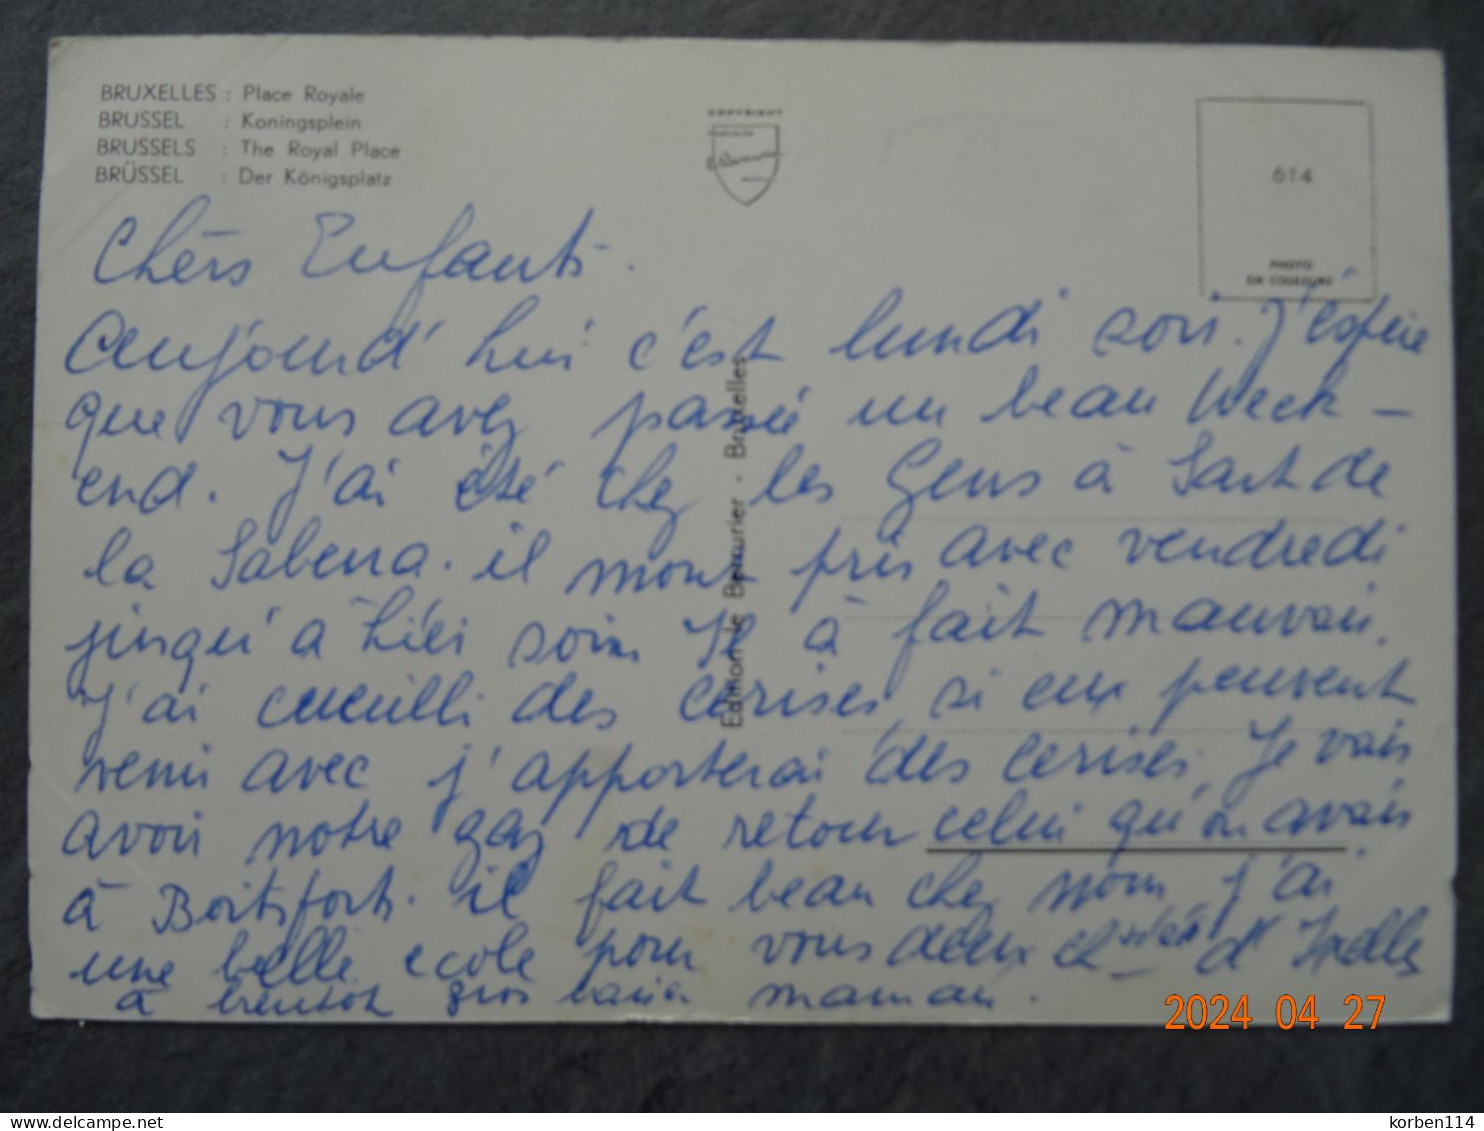 BRUXELLES : Place Royale
BRUSSEL : Koningsplein
BRUSSELS : The Royal Place
BRÜSSEL : Der Königsplatz
COPYRIGHT
614
PHOTO
EN COULEURS
Editions le Berrurier - Bruxelles
Chèrs Enfants.
Aujourd'hui c'est lundi soir. J'éspère
que vous avez passée un beau Week-
end. J'ai été chez les Gens à Sart de
la Sabena. il mont pris avec vendredi
jusqu'à hiér soir Il à fait mauvais.
J'ai cueilli des cerises, si eux peuvent
venir avec j'apporterai des cerises, Je vais
avoir notre gaz de retour celui qu'on avais
à Boitsforts. il fait beau chez nous j'ai
une belle ecole pour vous deux d'Ixelles
à bientôt gros baiser maman.
2024 04 27
korben114